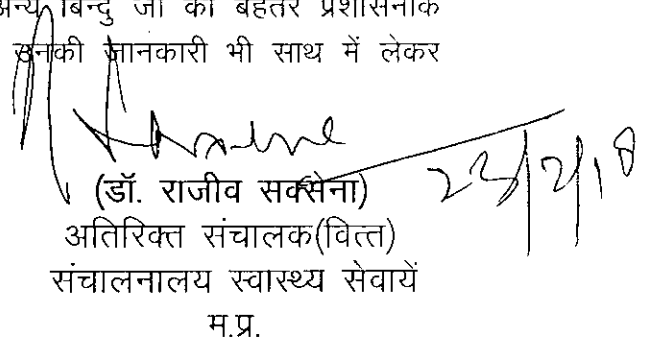 अन्य बिन्दु जो की बेहतर प्रशासनीक
उनकी जानकारी भी साथ में लेकर
23/2/18
(डॉ. राजीव सक्सेना)
अतिरिक्त संचालक(वित्त)
संचालनालय स्वास्थ्य सेवायें
म.प्र.